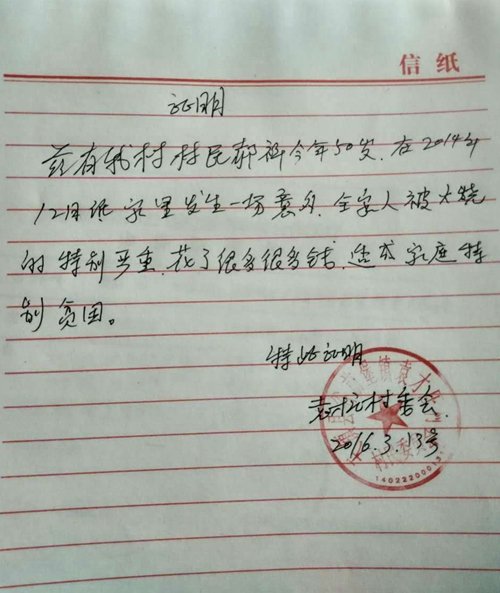 信纸
证明
兹有我村村民郝 今年50岁.在2014年
12月份家里发生一场意外.全家人被火烧
的特别严重.花了很多很多钱.造成家庭特
别贫困。
特此证明
村委会.
2016.3.13号
140222000